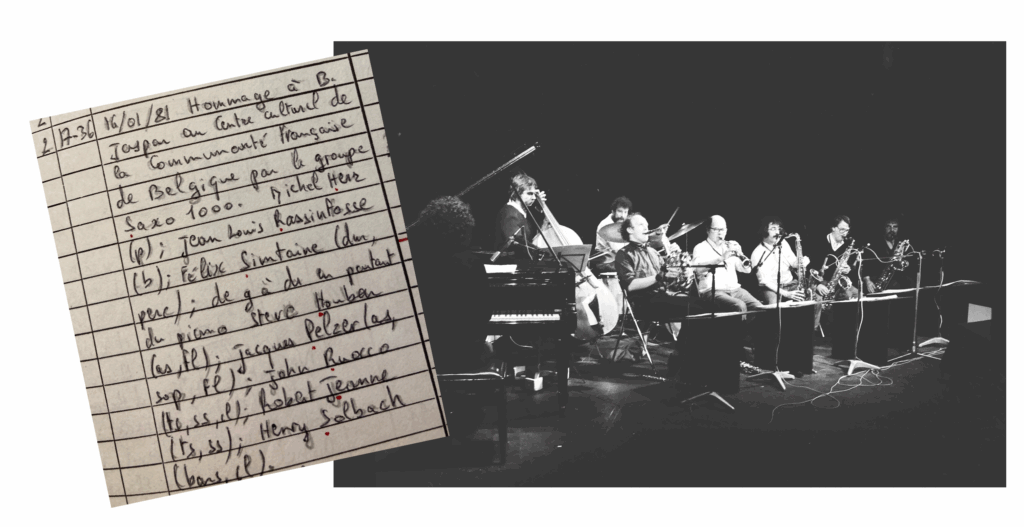 2 17-36 16/01/81 Hommage à B.
Jaspar au Centre culturel de
la Communauté Française
de Belgique par le groupe
Saxo 1000. Michel Herr
(p); Jean Louis Rassinfosse
(b); Félix Simtaine (dm,
perc); de g à dr en partant
du piano Steve Houben
(as, fl); Jacques Pelzer (as,
sop, fl); John Ruocco
(ts, ss, cl); Robert Jeanne
(ts, ss); Henry Solbach
(bars, cl).